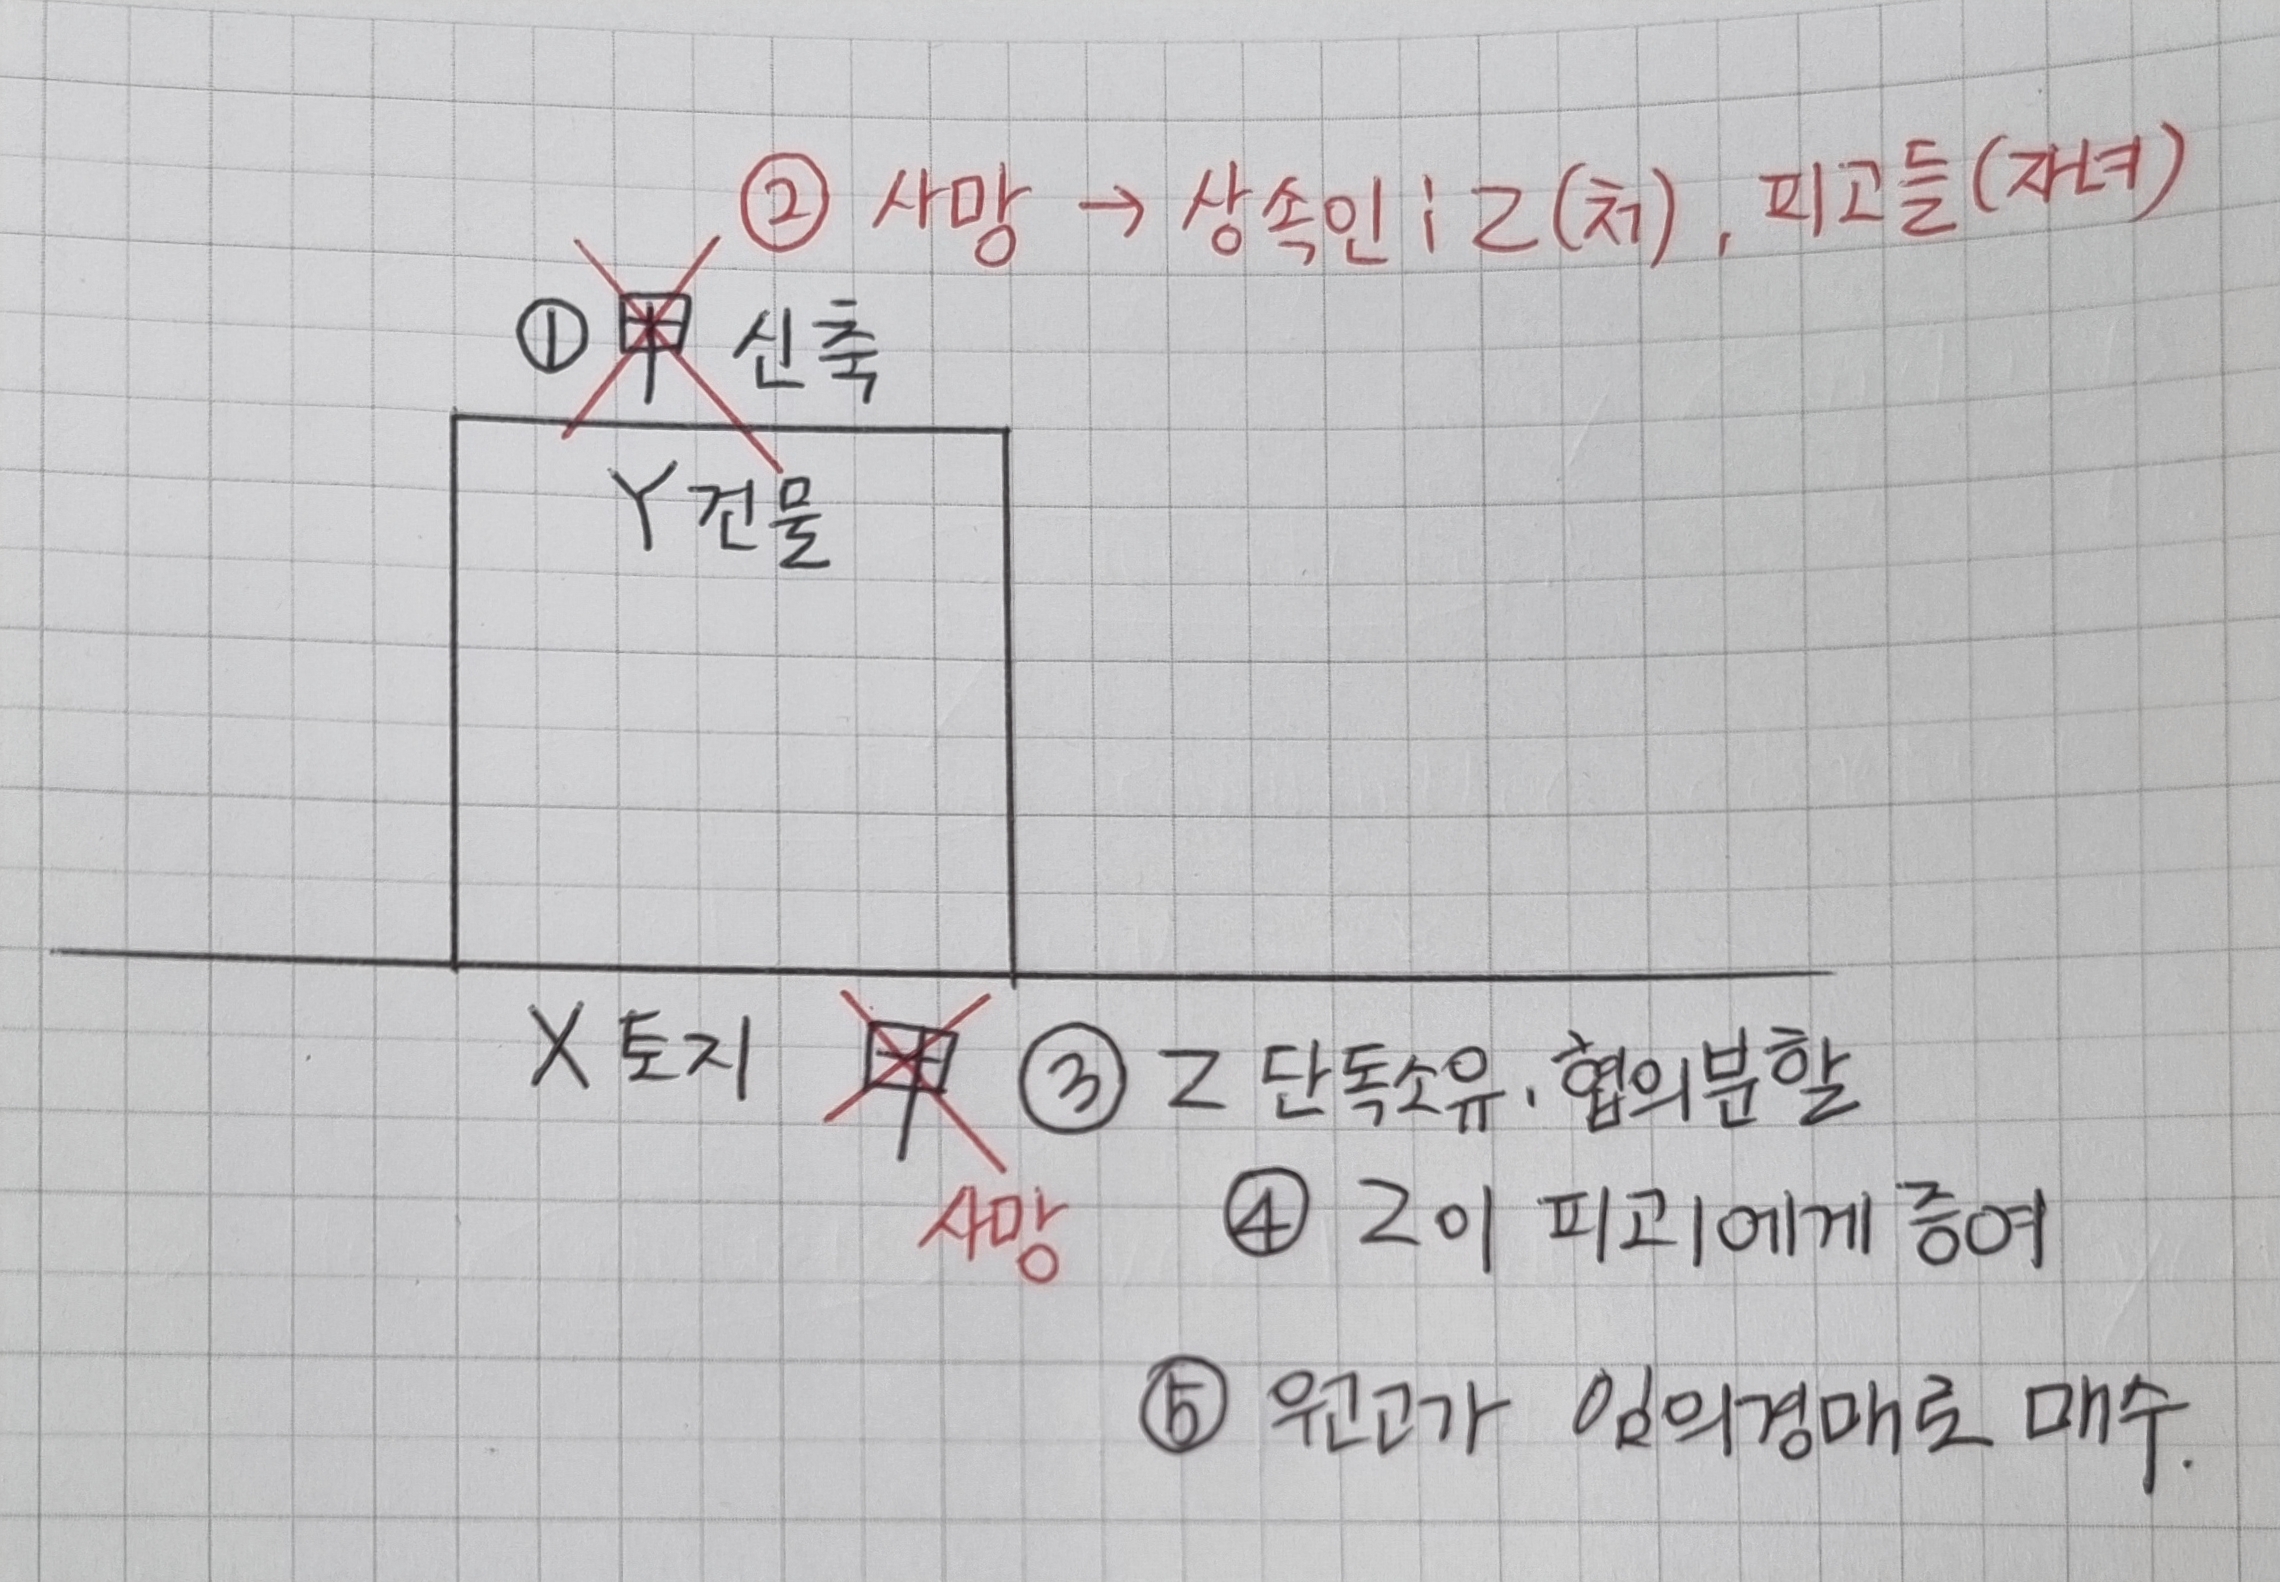 ② 사망 → 상속인 ; 乙(처), 피고들(자녀)
① 甲 신축
Y건물
X 토지 甲 ③ 乙 단독소유. 협의분할
사망 ④ 乙이 피고1에게 증여
⑤ 원고가 임의경매로 매수.